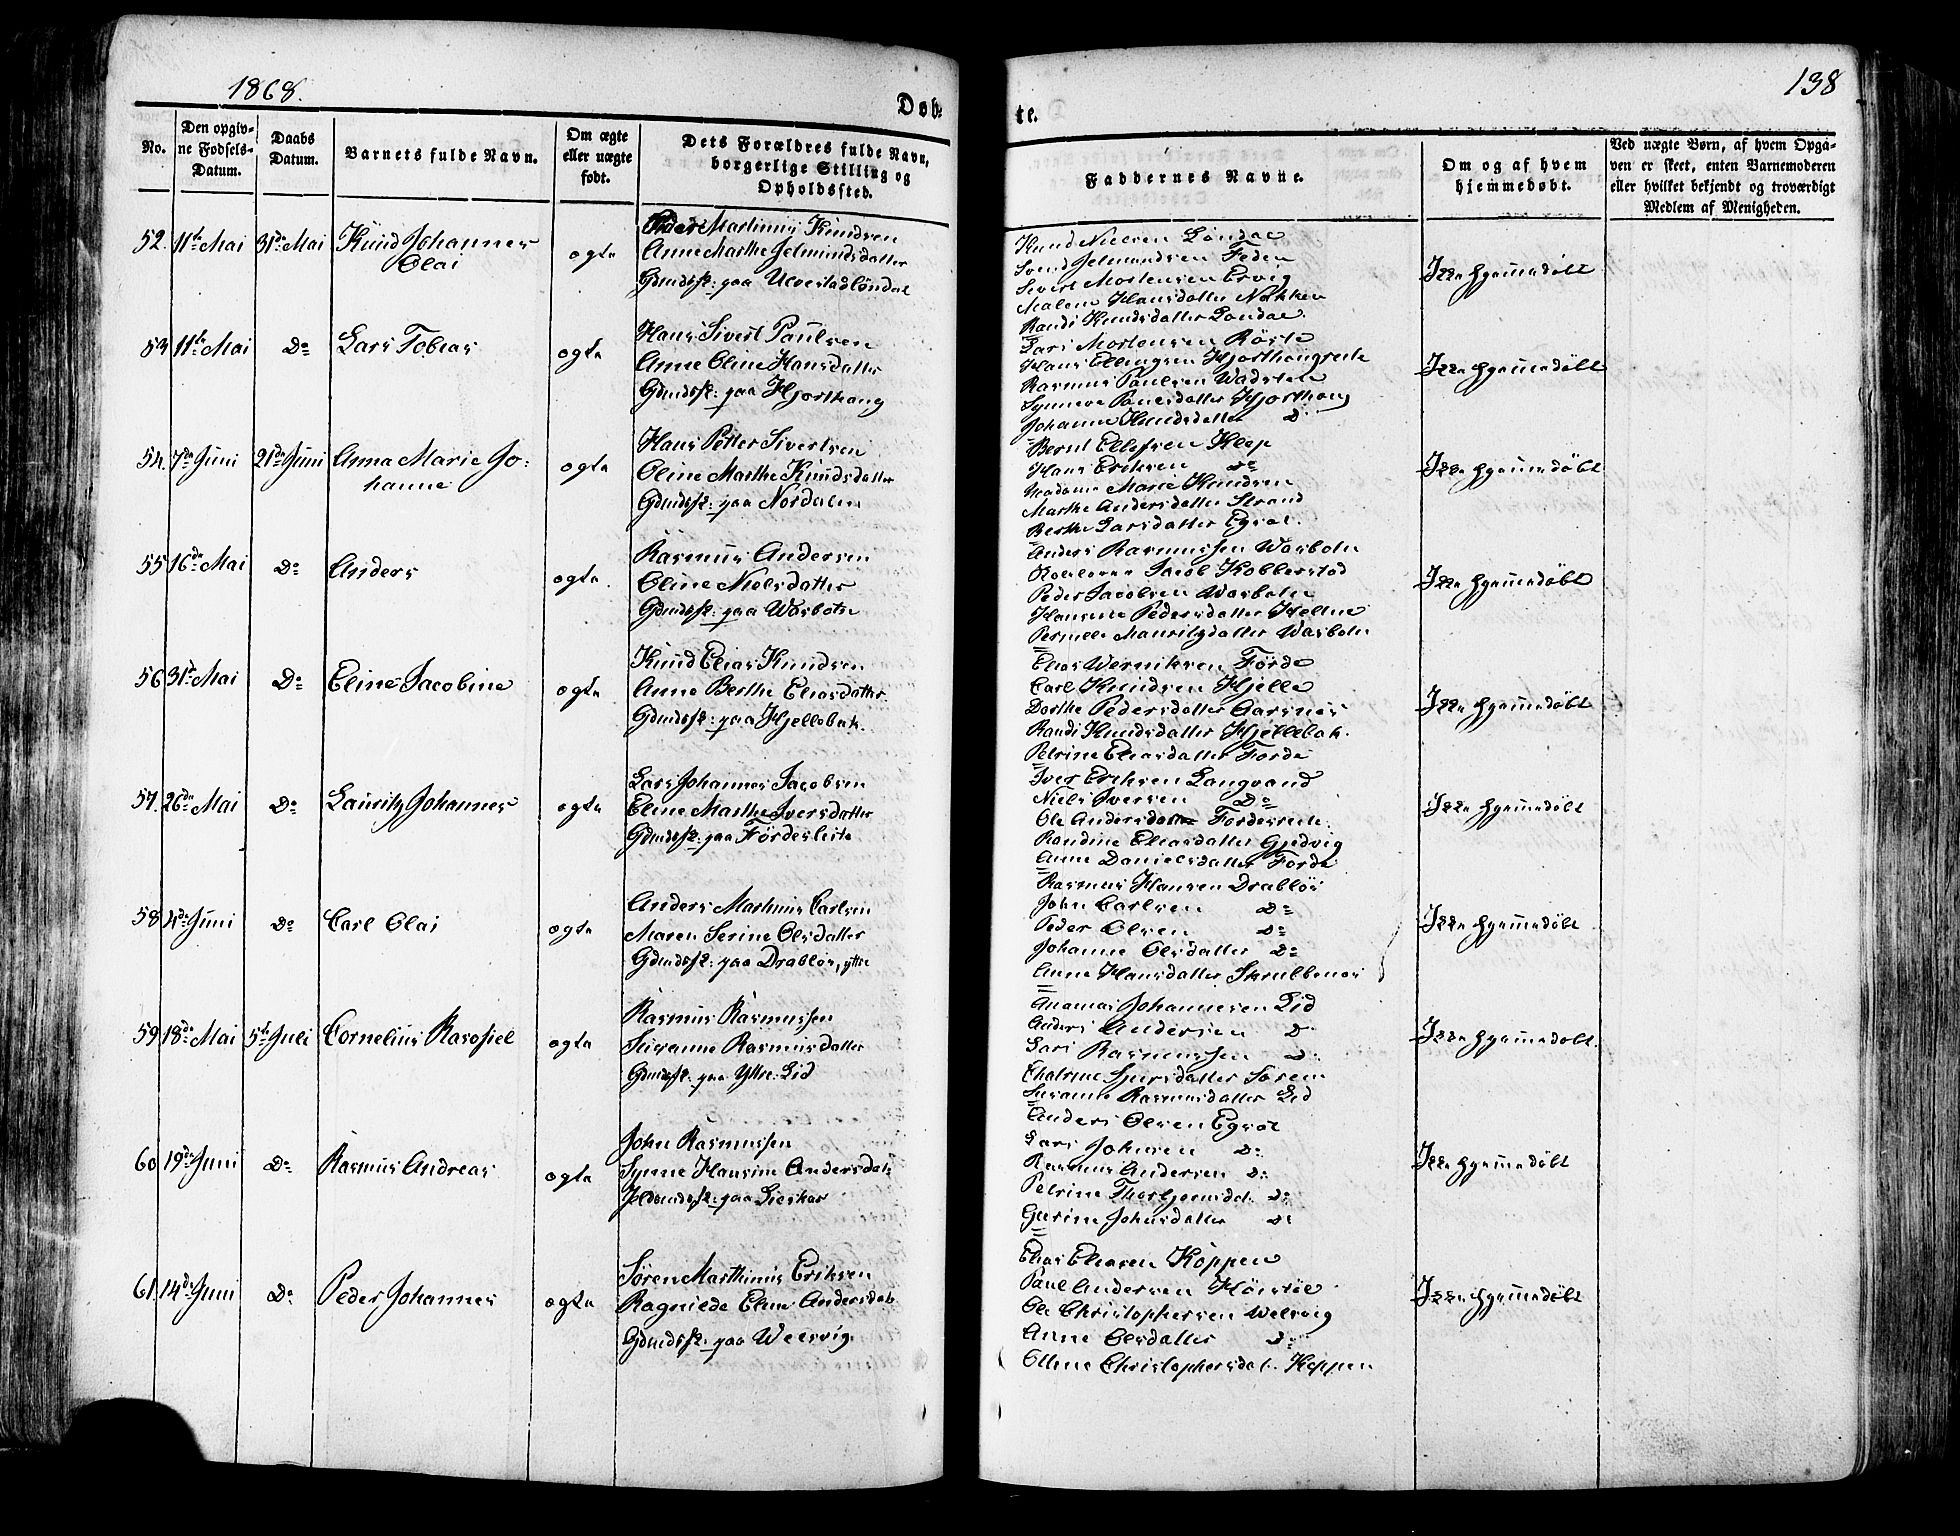 1868.
138
Døb-
te.
No.
Den opgiv-
ne Fødsels-
Datum.
Daabs
Datum.
Barnets fulde Navn.
Om ægte
eller uægte
født.
Dets Forældres fulde Navn,
borgerlige Stilling og
Opholdssted.
Faddernes Navne.
Om og af hvem
hjemmedøbt.
Ved uægte Børn, af hvem Opga-
ven er skeet, enten Barnemoderen
eller hvilket bekjendt og troværdigt
Medlem af Menigheden.
52. 11te Mai 31de Mai Knud Johannes
Olai
ægte
Peder Martinus Knudsen
Anne Marthe Jelmundsdatter
Gdmdsfk: paa
Knud Nielsen Løndal
Svend Jelmundsen Feden
Sivert Mortensen Ervig
Malene Hansdatter Nakken
Randi Knudsdatter Londal
Ikke hjemmedøbt
53 11te Mai Do Lars Tobias
ægte
Hans Sivert Paulsen
Anne Oline Hansdatter
Gdmdsfk: paa Hjorthaug
Lars Mortensen Røste
Hans Ellingsen Hjorthaugreite
Rasmus Paulsen Wadstein
Synneve Paulsdatter Hjorthaug
Johanne Knudsdatter Do
Ikke hjemmedøbt
54. 7de Juni 21de Juni Anna Marie Jo-
hanne
ægte
Hans Petter Sivertsen
Oline Marthe Knudsdatter
Gdmdsfk: paa Nordalen
Bernt Ellefsen Klep
Hans Eriksen Do
Madame Marie Knudsen
Marthe Andersdatter Strand
Berthe Larsdatter Egset.
Ikke hjemmedøbt
55 16de Mai Do Anders
ægte.
Rasmus Andersen
Oline Nielsdatter
Gdmdsfk: paa Wasbotn
Anders Rasmussen Wasbotn
Jacob Kobberstad
Peder Jacobsen Wasbotn
Hansine Pedersdatter Hellene
Pernelle Mauritzdatter Wasbotn
Ikke hjemmedøbt
56 31te Mai Do Eline Jacobine
ægte
Knud Elias Knudsen
Anne Berthe Eliasdatter
Gdmdsfk: paa Hjellebak.
Elias Werniksen Førde
Carl Knudsen Hjelle
Dorthe Pedersdatter Aarsnes
Randi Knudsdatter Hjellebak.
Petrine Eliasdatter Førde
Ikke hjemmedøbt
57. 26de Mai Do Lauritz Johannes
ægte
Lars Johannes Jacobsen
Eline Marthe Iversdatter
Gdmdsfk: paa Førdesleite
Iver Eriksen Langvand
Niels Iversen Do
Ole Andersdatter Fordesreite
Randine Eliasdatter Gjedvig
Anne Danielsdatter Førde
Ikke hjemmedøbt
58 4de Juni Do Carl Olai
ægte
Anders Martinus Carlsen
Maren Serine Olsdatter
Gdmdsfk: paa Drabløs, ytre
Rasmus Hansen Drabløs
John Carlsen Do
Peder Olsen Do
Johanne Olsdatter Do
Anne Hansdatter
Ikke hjemmedøbt
59 18de Mai 5te Juli Cornelius Rasofiel
ægte
Rasmus Rasmussen
Susanne Rasmusdatter
Gdmdsfk: paa Ytre: Lid
Johannesen Lid
Anders Andersen Do
Lars Rasmussen Do
Sjursdatter
Susanne Rasmusdatter Lid
Ikke hjemmedøbt.
60 19de Juni Do Rasmus Andreas
ægte
John Rasmussen
Synne Hansine Andersdat:
paa Lieskar
Anders Olsen Egset
Lars Johnsen Do
Rasmus Andersen Do
Petrine Do
Gurine Johnsdatter Do
Ikke hjemmedøbt
61 14de Juni Do Peder Johannes
ægte
Søren Marthinus Eriksen
Ragnilde Eline Andersdat
Gdmdsfk: paa Welsvig
Elias Eliasen Koppen
Paul Andersen
Ole Christophersen Welsvig
Anne Olsdatter Do
Oline Christophersdat. Koppen
Ikke hjemmedøbt